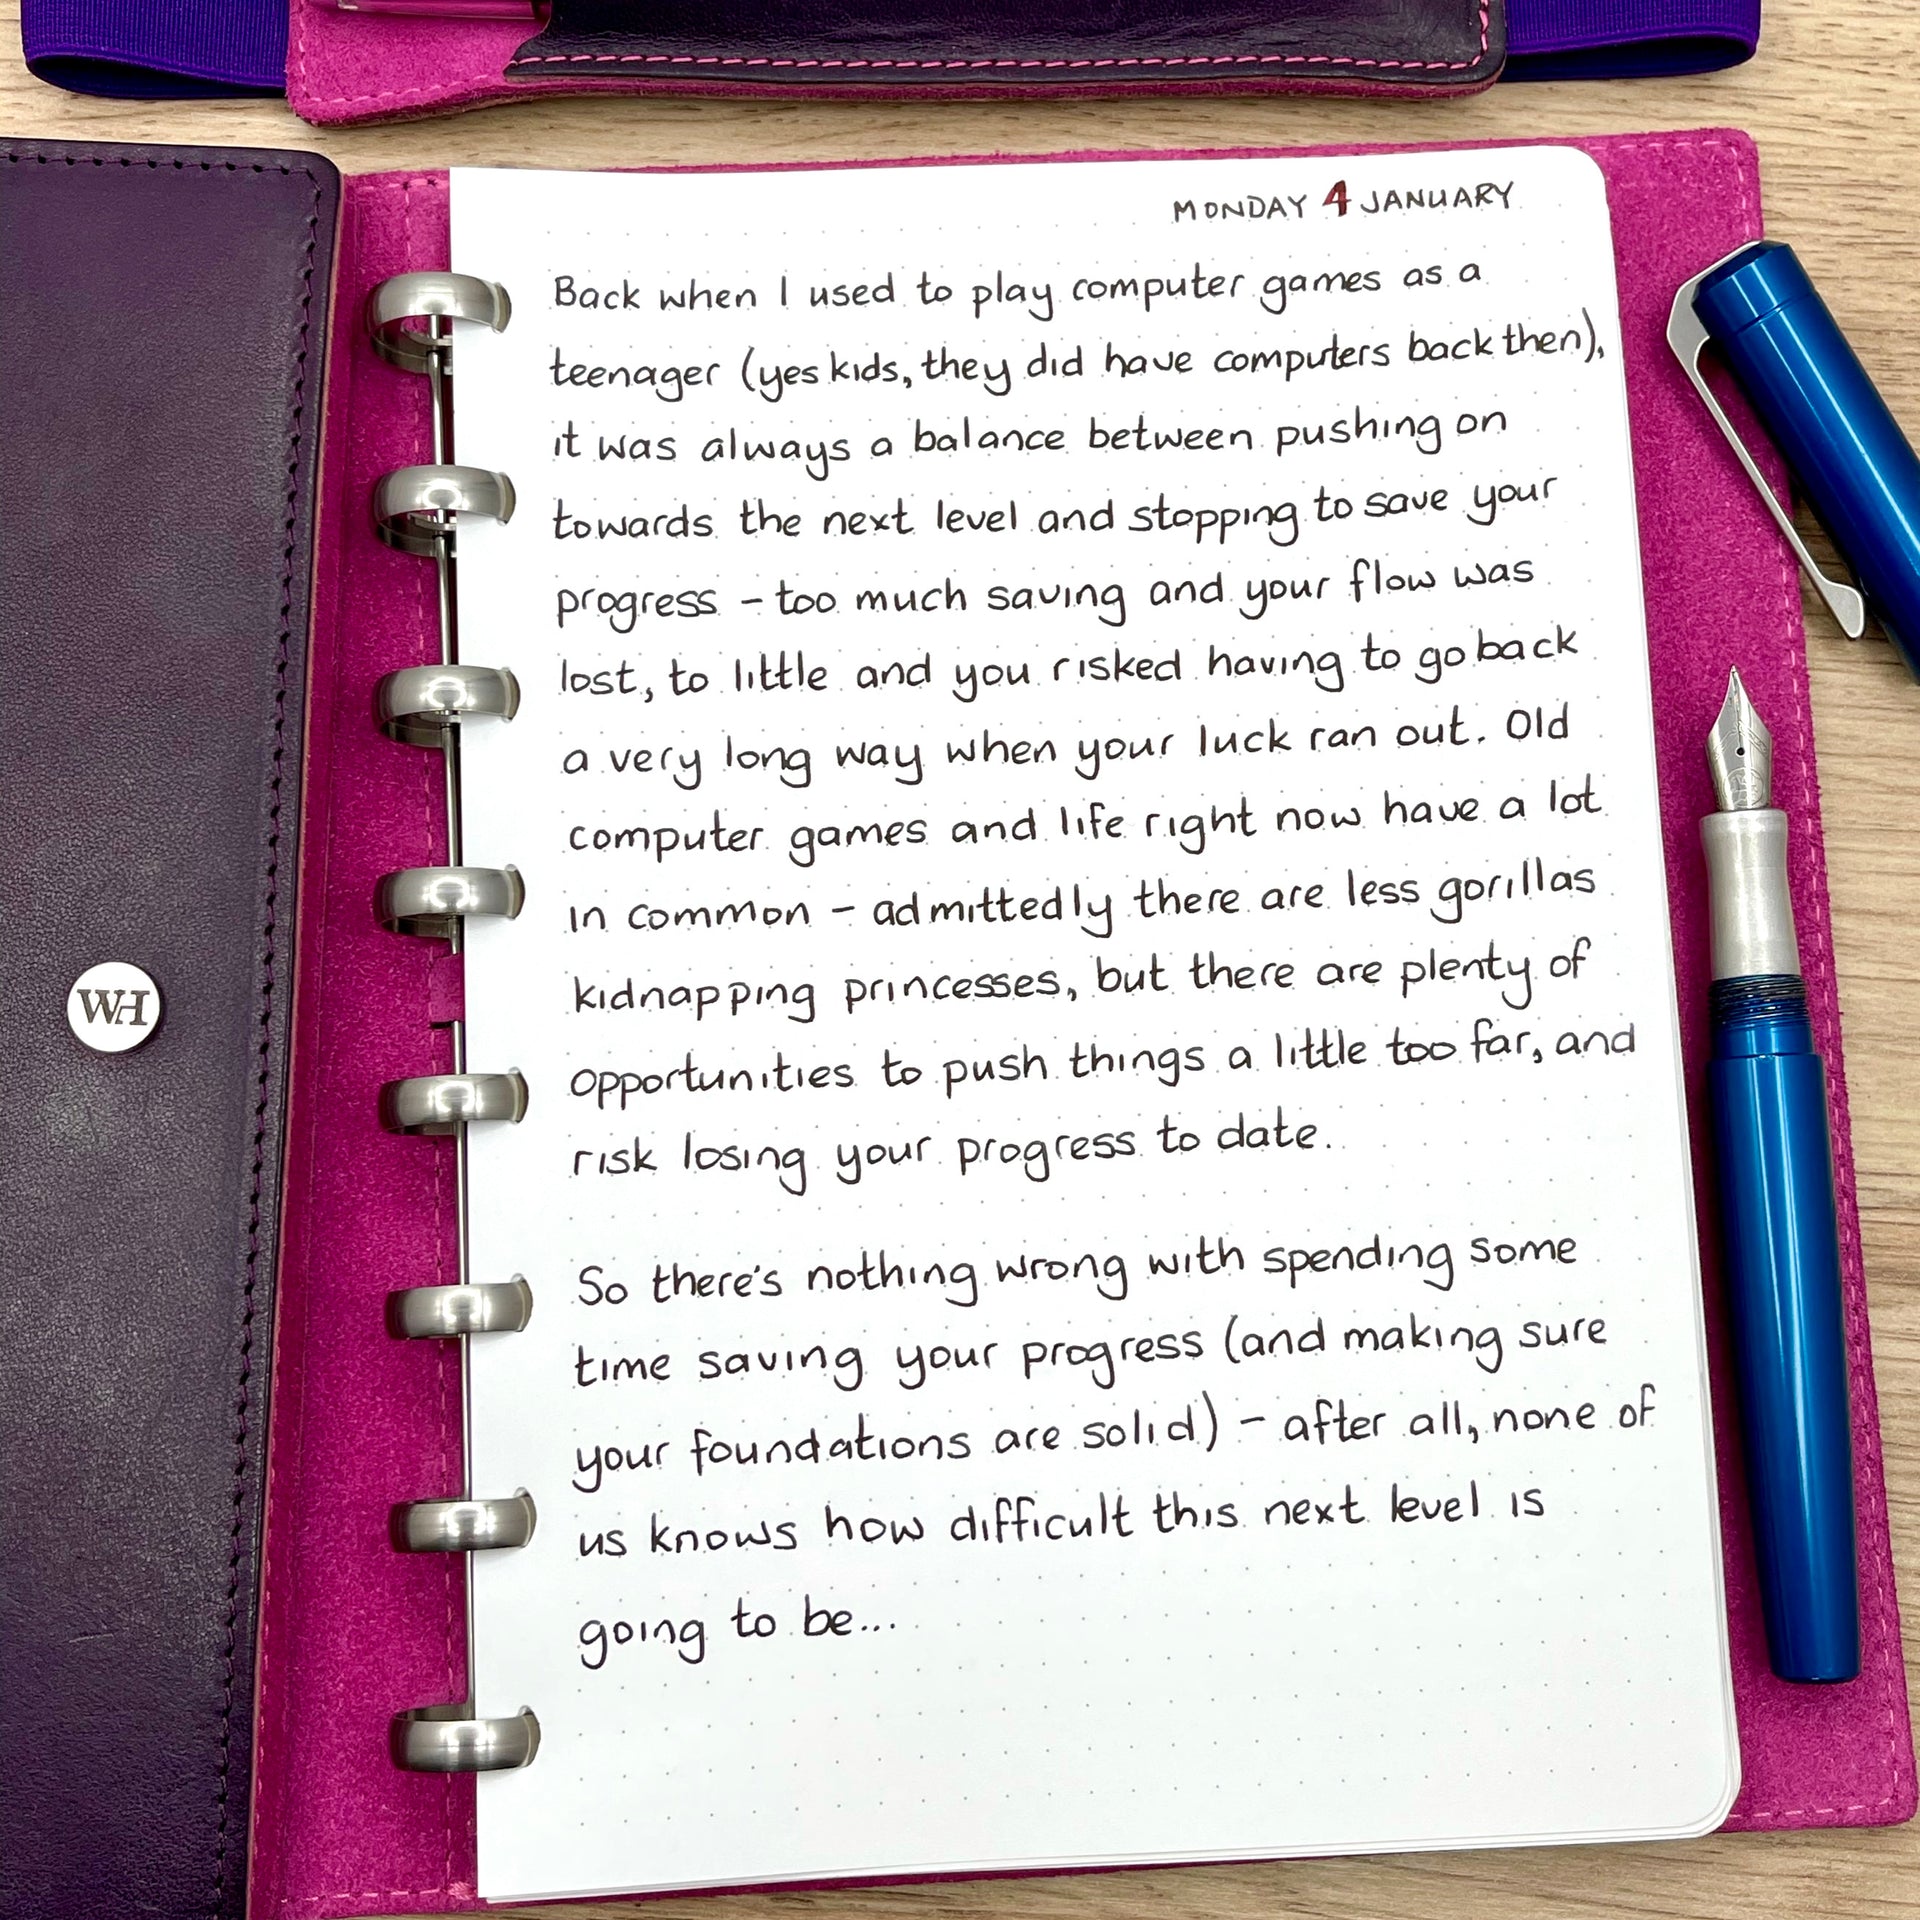 MONDAY 4 JANUARY
Back when I used to play computer games as a
teenager (yes kids, they did have computers back then),
it was always a balance between pushing on
towards the next level and stopping to save your
progress – too much saving and your flow was
lost, to little and you risked having to go back
a very long way when your luck ran out. Old
computer games and life right now have a lot
in common – admittedly there are less gorillas
kidnapping princesses, but there are plenty of
opportunities to push things a little too far, and
risk losing your progress to date.
So there's nothing wrong with spending some
time saving your progress (and making sure
your foundations are solid) – after all, none of
us knows how difficult this next level is
going to be...
WH